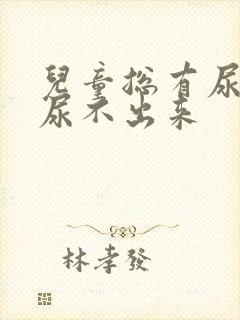 兒童総有尿
尿不出来
林孝發